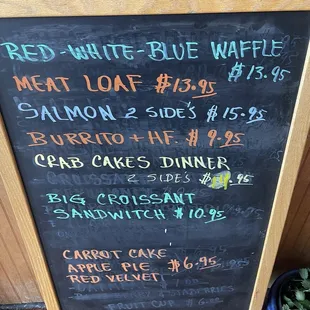 RED-WHITE-BLUE WAFFLE
$13.95
MEAT LOAF $13.95
SALMON 2 SIDE'S $15.95
BURRITO + HF. $9.95
CRAB CAKES DINNER
2 SIDE'S .95
BIG CROISSANT
SANDWITCH $10.95
CARROT CAKE
APPLE PIE $6.95
RED VELVET
FRUIT CUP